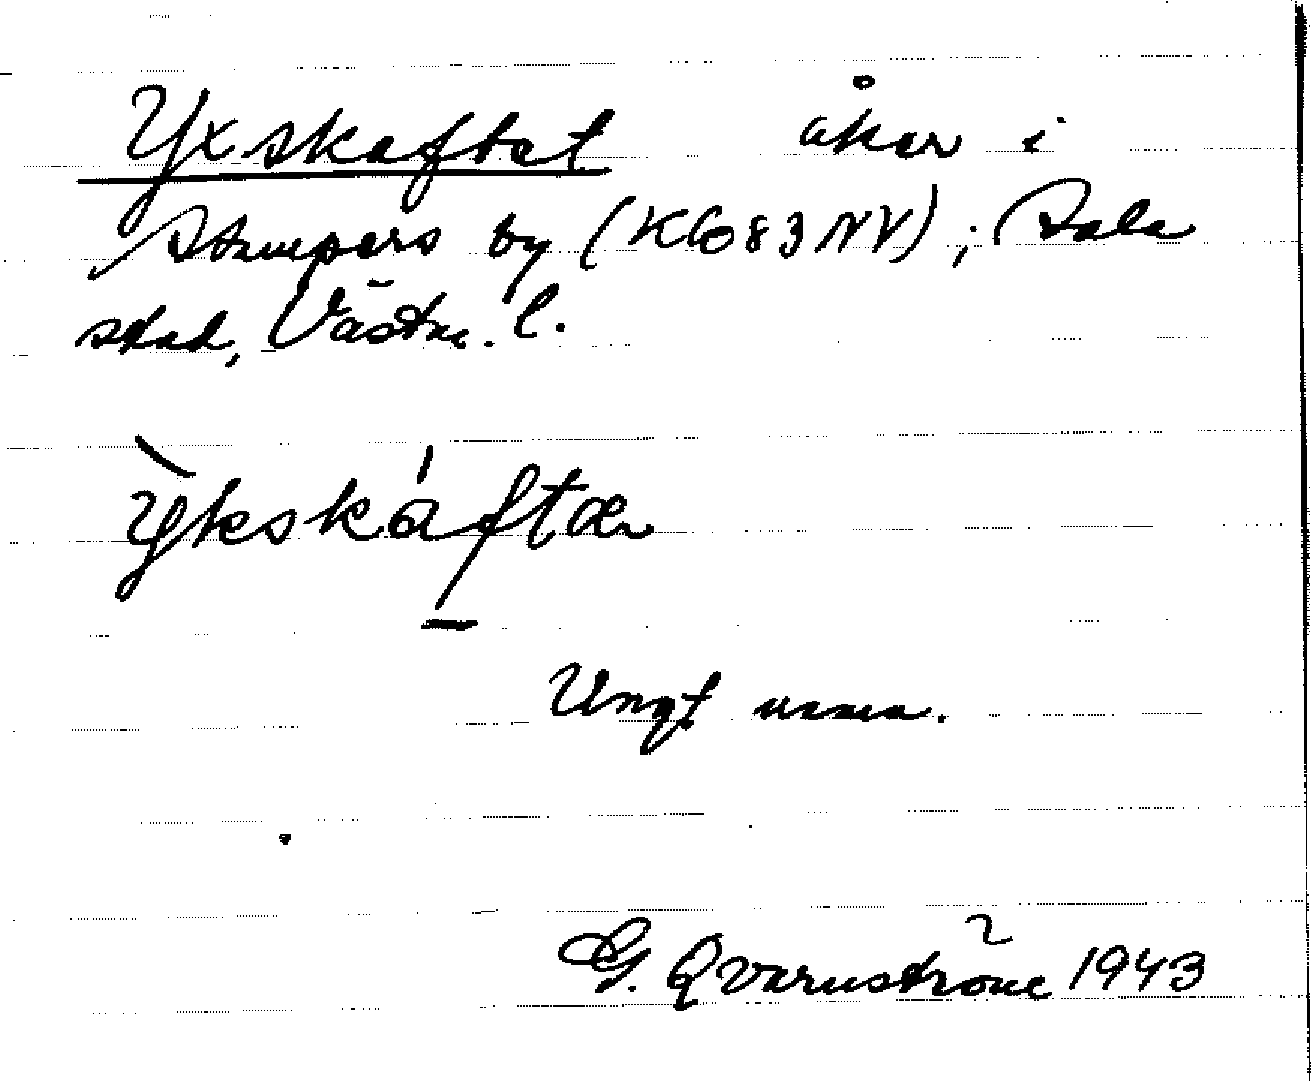 Yxskaftet åker i
Stampers by (KG 83 NV); Sala
stad, Västm. l.
ỳkskáftæ
Ungt namn.
G. Qvarnström 1943